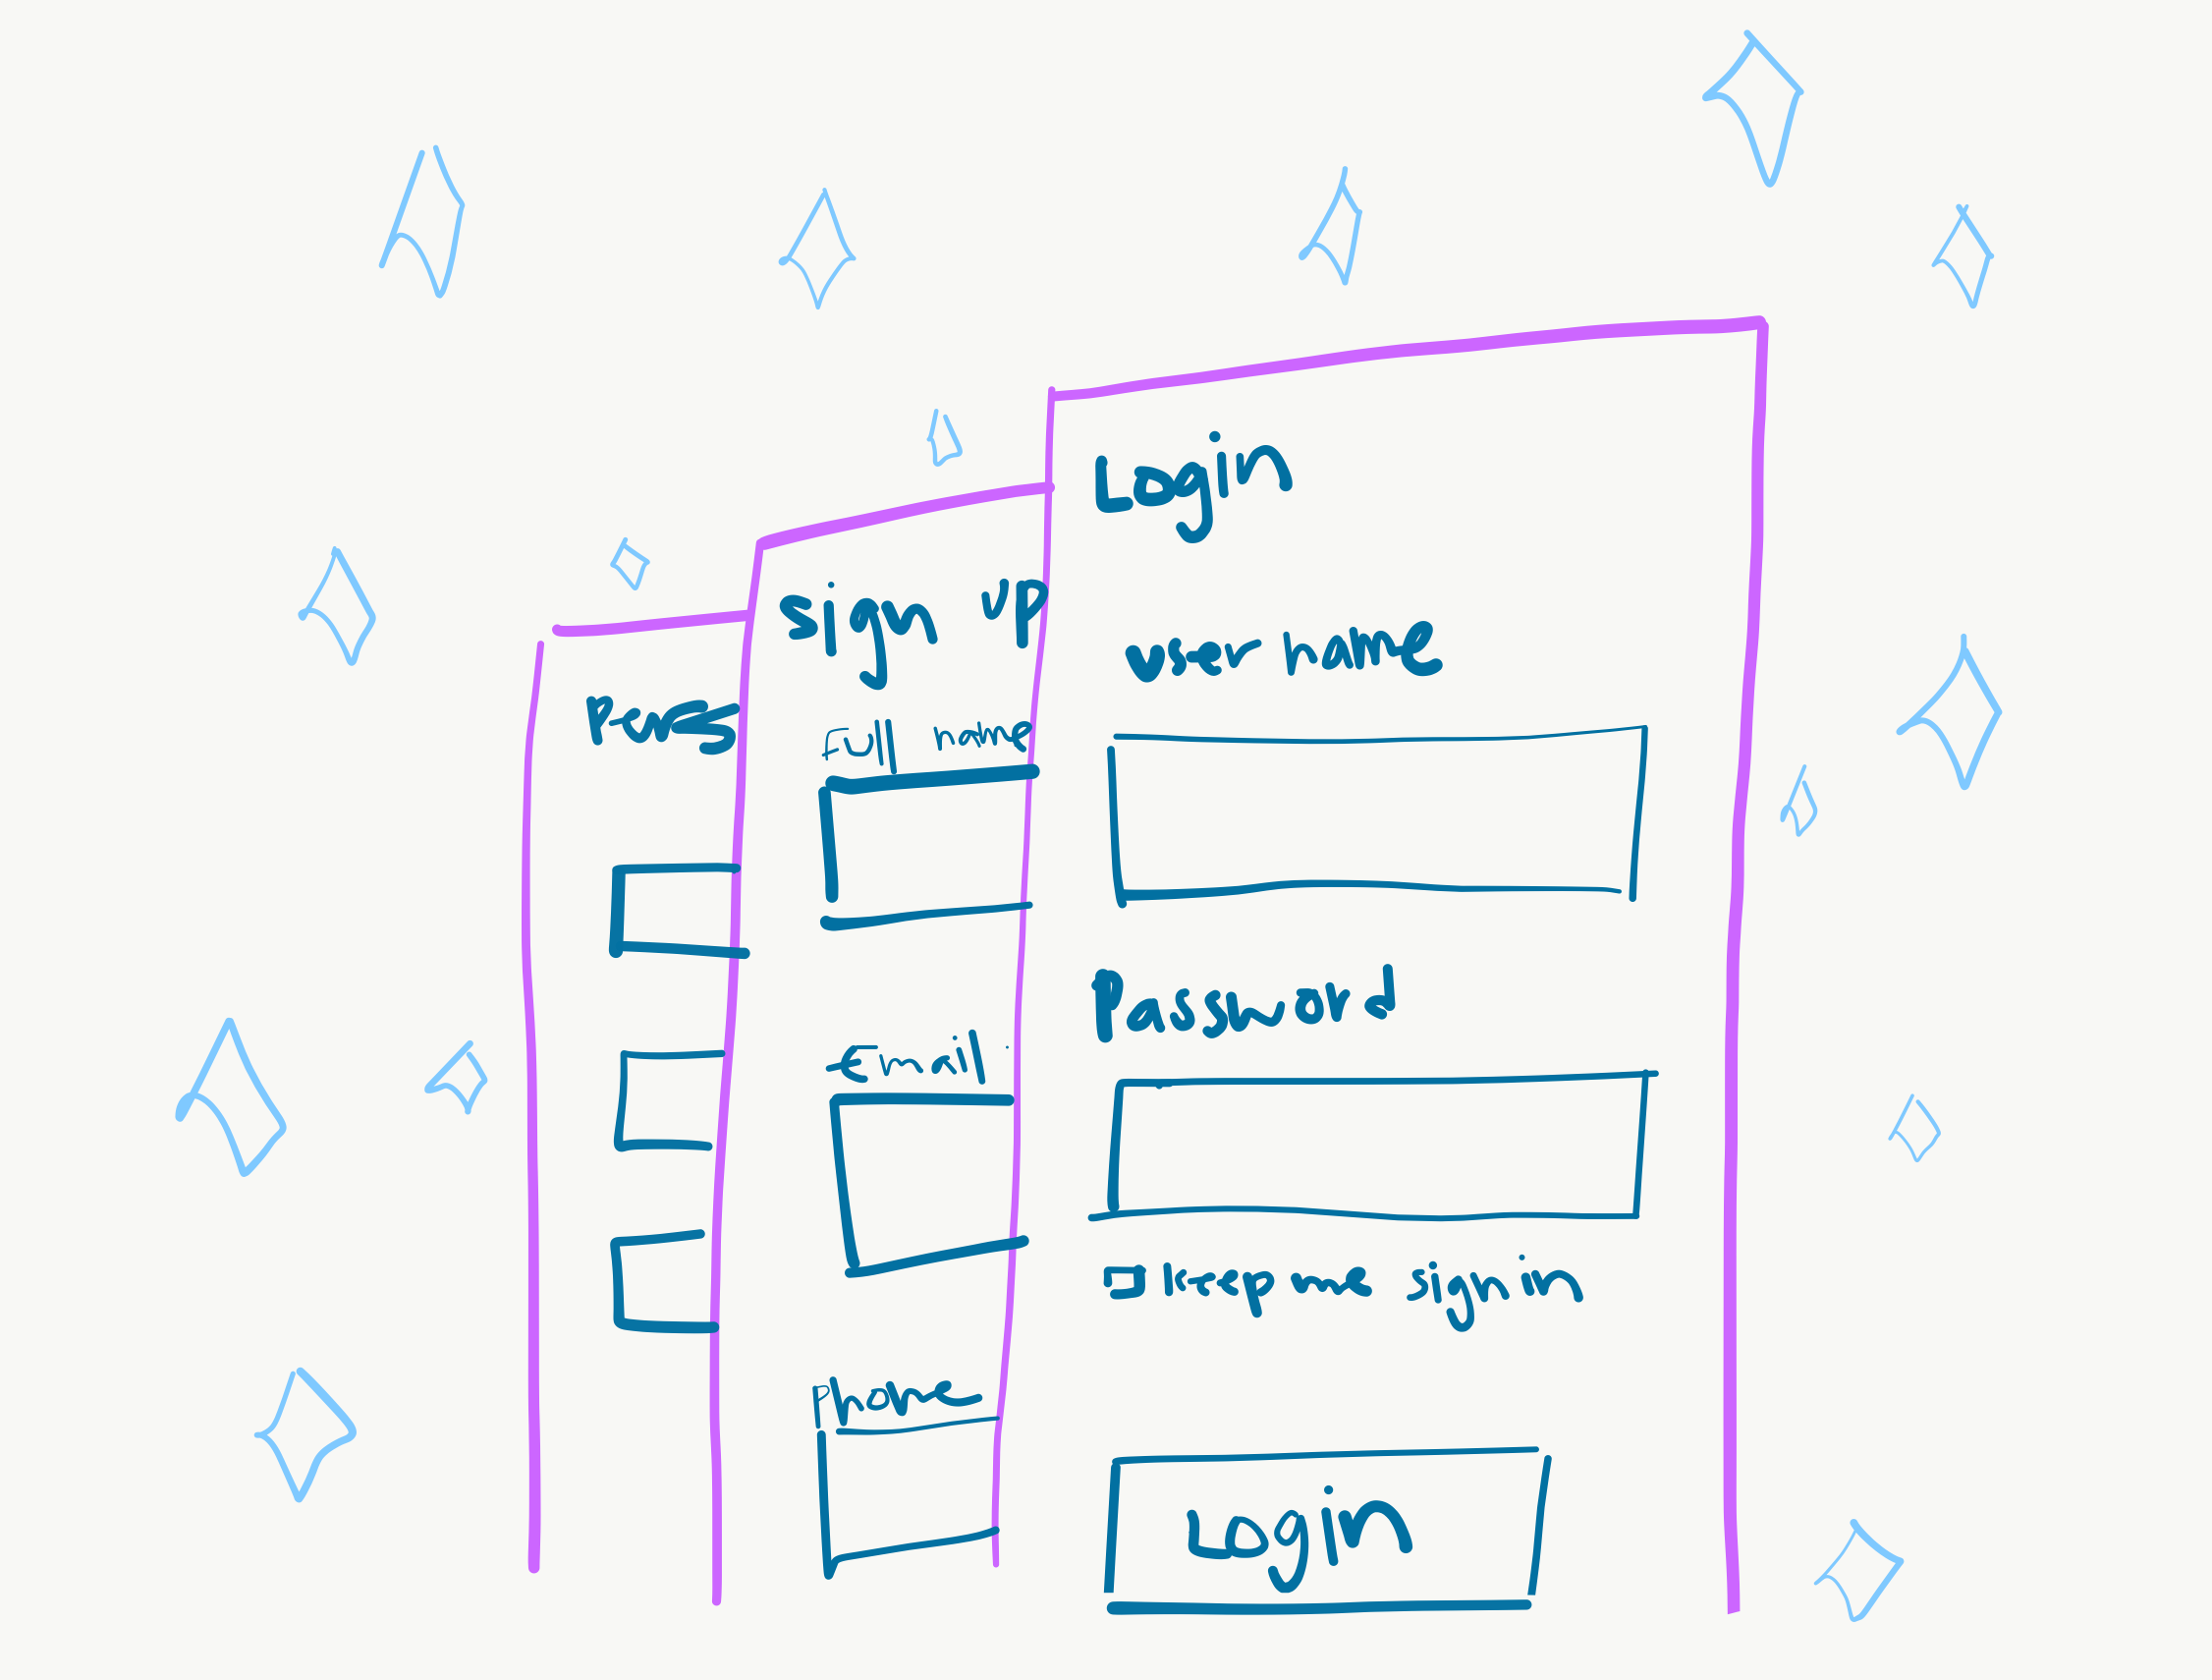 sign up
Full name
Email
Phone
Login
user name
Password
keep me sign in
Login